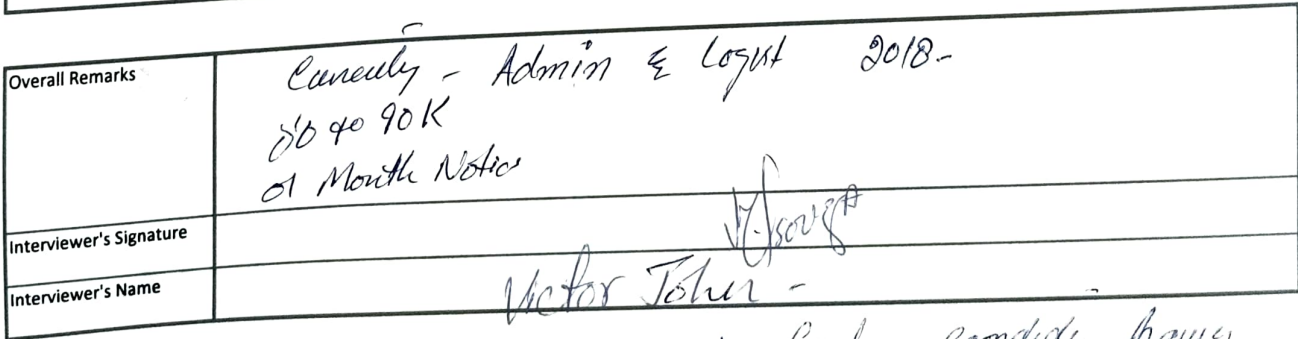 Overall Remarks
Currently - Admin & Logist 2018-
80 to 90K
01 Month Notice
Interviewer's Signature
Interviewer's Name
Victor John -